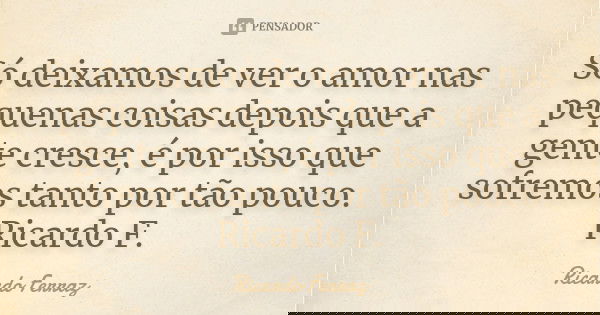 PENSADOR
Só deixamos de ver o amor nas
pequenas coisas depois que a
gente cresce, é por isso que
sofremos tanto por tão pouco.
Ricardo F.
Ricardo Ferraz